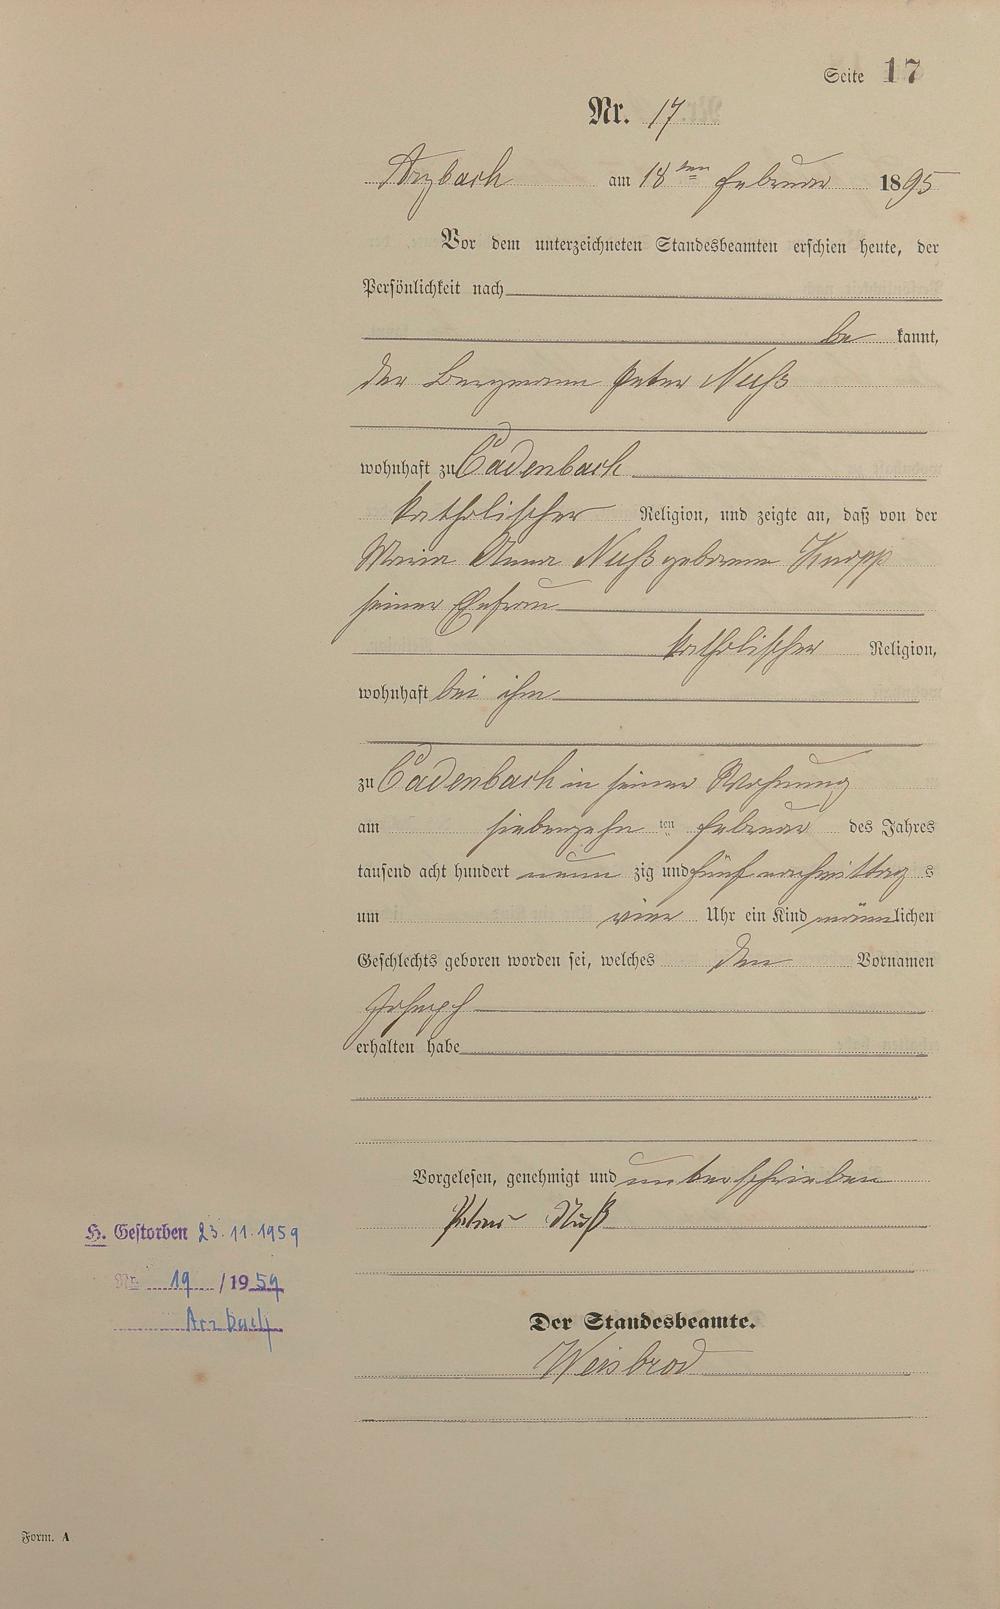 Seite 17
Nr. 17
Arzbach am 18ten Februar 1895
Vor dem unterzeichneten Standesbeamten erschien heute, der
Persönlichkeit nach
be kannt,
der Bergmann Peter Nuß
wohnhaft zu Cadenbach
katholischer Religion, und zeigte an, daß von der
Maria Anna Nuß geborene Knopp
seiner Ehefrau
katholischer Religion,
wohnhaft bei ihm
zu Cadenbach in seiner Wohnung
am siebenzehn ten Februar des Jahres
tausend acht hundert neun zig und fünf nachmittag s
um vier Uhr ein Kind männlichen
Geschlechts geboren worden sei, welches den Vornamen
Joseph
erhalten habe
Vorgelesen, genehmigt und unterschrieben
Peter Nuß
H. Gestorben 23.11.1959
Nr. 19 /1959
Arzbach
Der Standesbeamte.
Weisbrod
Form. A